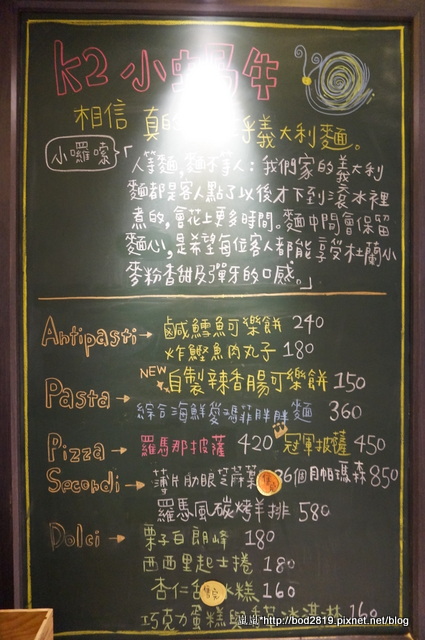 K2 小蝸牛
相信 真的 義大利麵。
小囉嗦
「人等麵,麵不等人:我們家的義大利
麵都是客人點了以後才下到滾水裡
煮的,會花上更多時間。麵中間會保留
麵心,是希望每位客人都能享受杜蘭小
麥粉香甜及彈牙的口感。」
Antipasti→ 鹹鱈魚可樂餅 240
炸鰹魚肉丸子 180
NEW 自製辣香腸可樂餅 150
Pasta → 綜合海鮮愛瑪菲胖胖麵 360
Pizza → 羅馬那披薩 420 冠軍披薩 450
Secondi→ 薄片肋眼芝麻葉 36個月帕瑪森 850
羅馬風碳烤羊排 580
Dolci → 栗子白朗峰 180
西西里起士捲 180
杏仁 糕 160
巧克力蛋糕與 冰淇淋 160
*http://bod2819.pixnet.net/blog